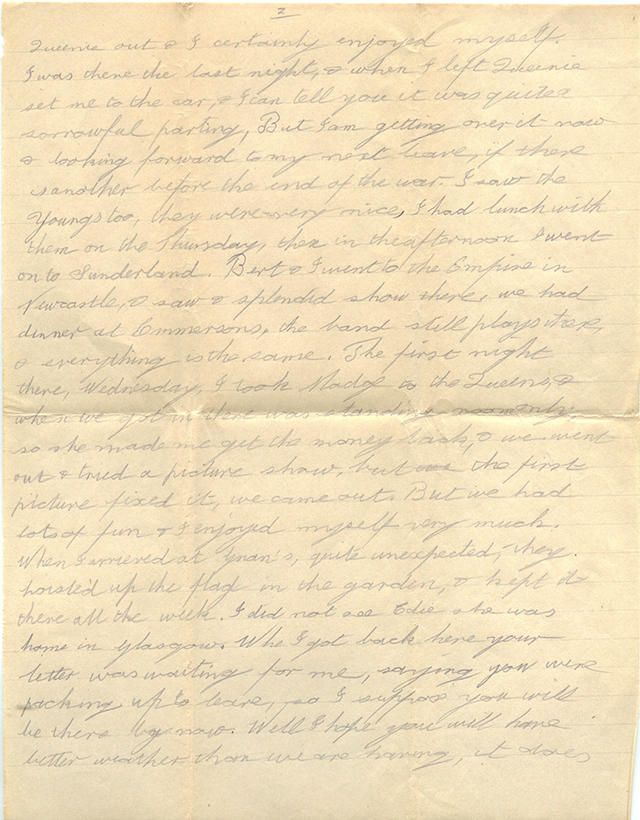 2
Queenie out & I certainly enjoyed myself.
I was there the last night, & when I left Queenie
set me to the car, & I can tell you it was quite a
sorrowful parting, But I am getting over it now
& looking forward to my next leave, if there
is another before the end of the war. I saw the
Youngs too, they were very nice, I had lunch with
them on the Thursday, then in the afternoon I went
on to Sunderland. Bert & I went to the Empire in
Newcastle, & saw a splendid show there, we had
dinner at Emmersons, the band still plays there,
& everything is the same. The first night
there, Wednesday, I took Madge to the Queens, &
when we got in there was standing room only
so she made me get the money back, & we went
out & tried a picture show, but the first
picture fixed it, we came out. But we had
lots of fun & I enjoyed myself very much.
When I arriered at Gran's, quite unexpected, they
hoisted up the flag in the garden, & kept it
there all the week. I did not see Edie she was
home in Glasgow. Whe I got back here your
letter was waiting for me, saying you were
packing up to leave, so I suppose you will
be there by now. Well I hope you will have
better weather than we are having, it does